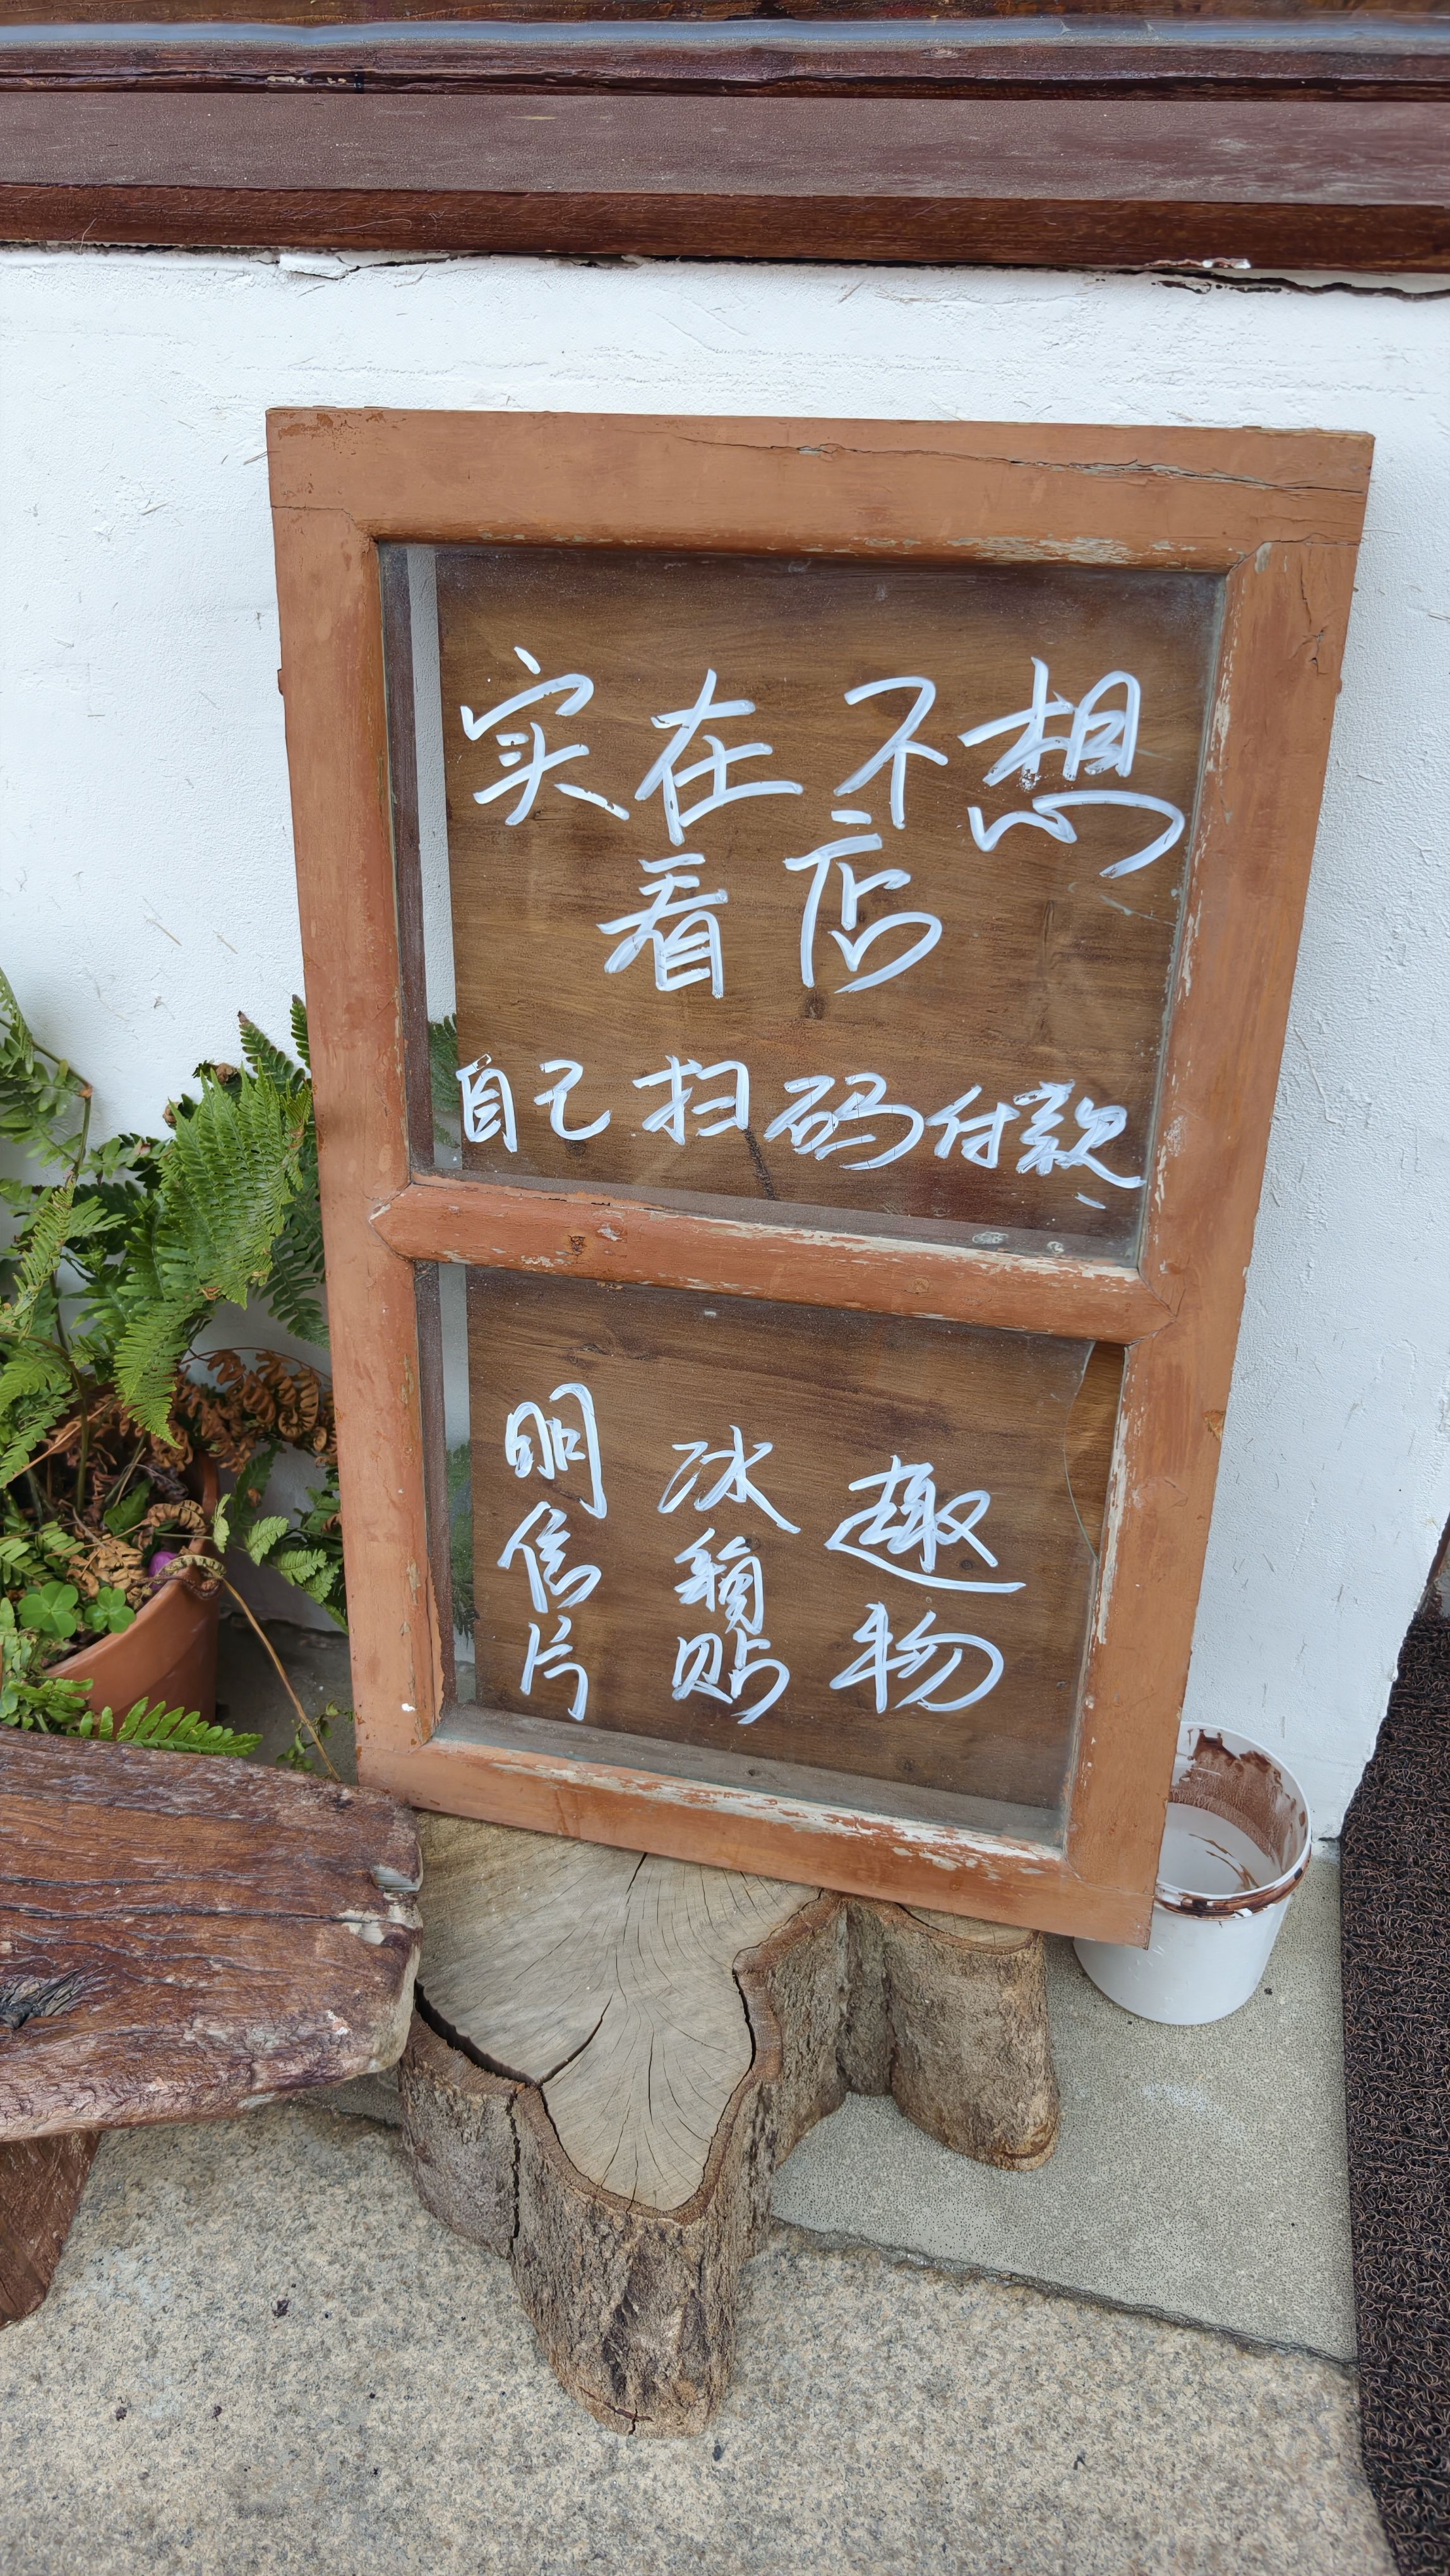 实在不想
看店
自己扫码付款
明信片
冰箱贴
趣物